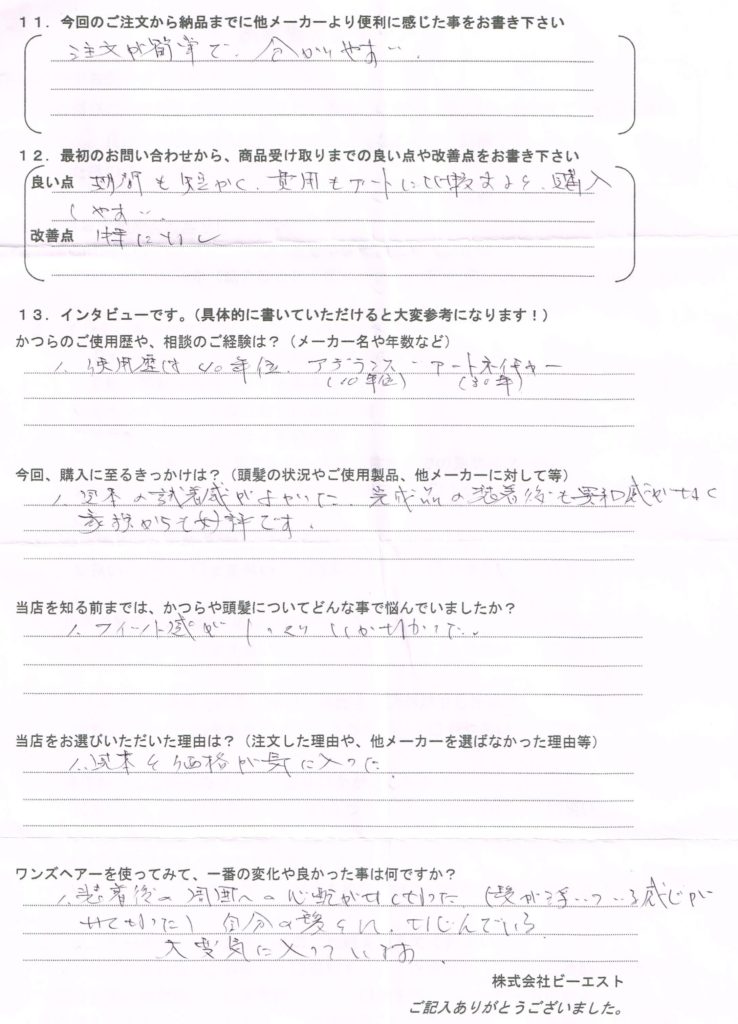 １１．今回のご注文から納品までに他メーカーより便利に感じた事をお書き下さい
注文が簡単で、分かりやすい．
１２．最初のお問い合わせから、商品受け取りまでの良い点や改善点をお書き下さい
良い点 期間も短かく、費用もアートに比較すると、購入
しやすい．
改善点 特になし
１３．インタビューです。（具体的に書いていただけると大変参考になります！）
かつらのご使用歴や、相談のご経験は？（メーカー名や年数など）
1. 使用歴は40年位．アデランス・アートネイチャー
(10年位) (30年)
今回、購入に至るきっかけは？（頭髪の状況やご使用製品、他メーカーに対して等）
1. 見本の試着感がよかった．完成品の装着後も異和感がなく
家族からも好評です．
当店を知る前までは、かつらや頭髪についてどんな事で悩んでいましたか？
1. フィット感がしっくりいかなかった。
当店をお選びいただいた理由は？（注文した理由や、他メーカーを選ばなかった理由等）
1. 見本と価格が気に入った
ワンズヘアーを使ってみて、一番の変化や良かった事は何ですか？
1. 装着後の周囲への心配がなくなった．（髪が浮いている感じが
なくなった）自分の髪と なじんでいる．
大変気に入っています
株式会社ビーエスト
ご記入ありがとうございました。